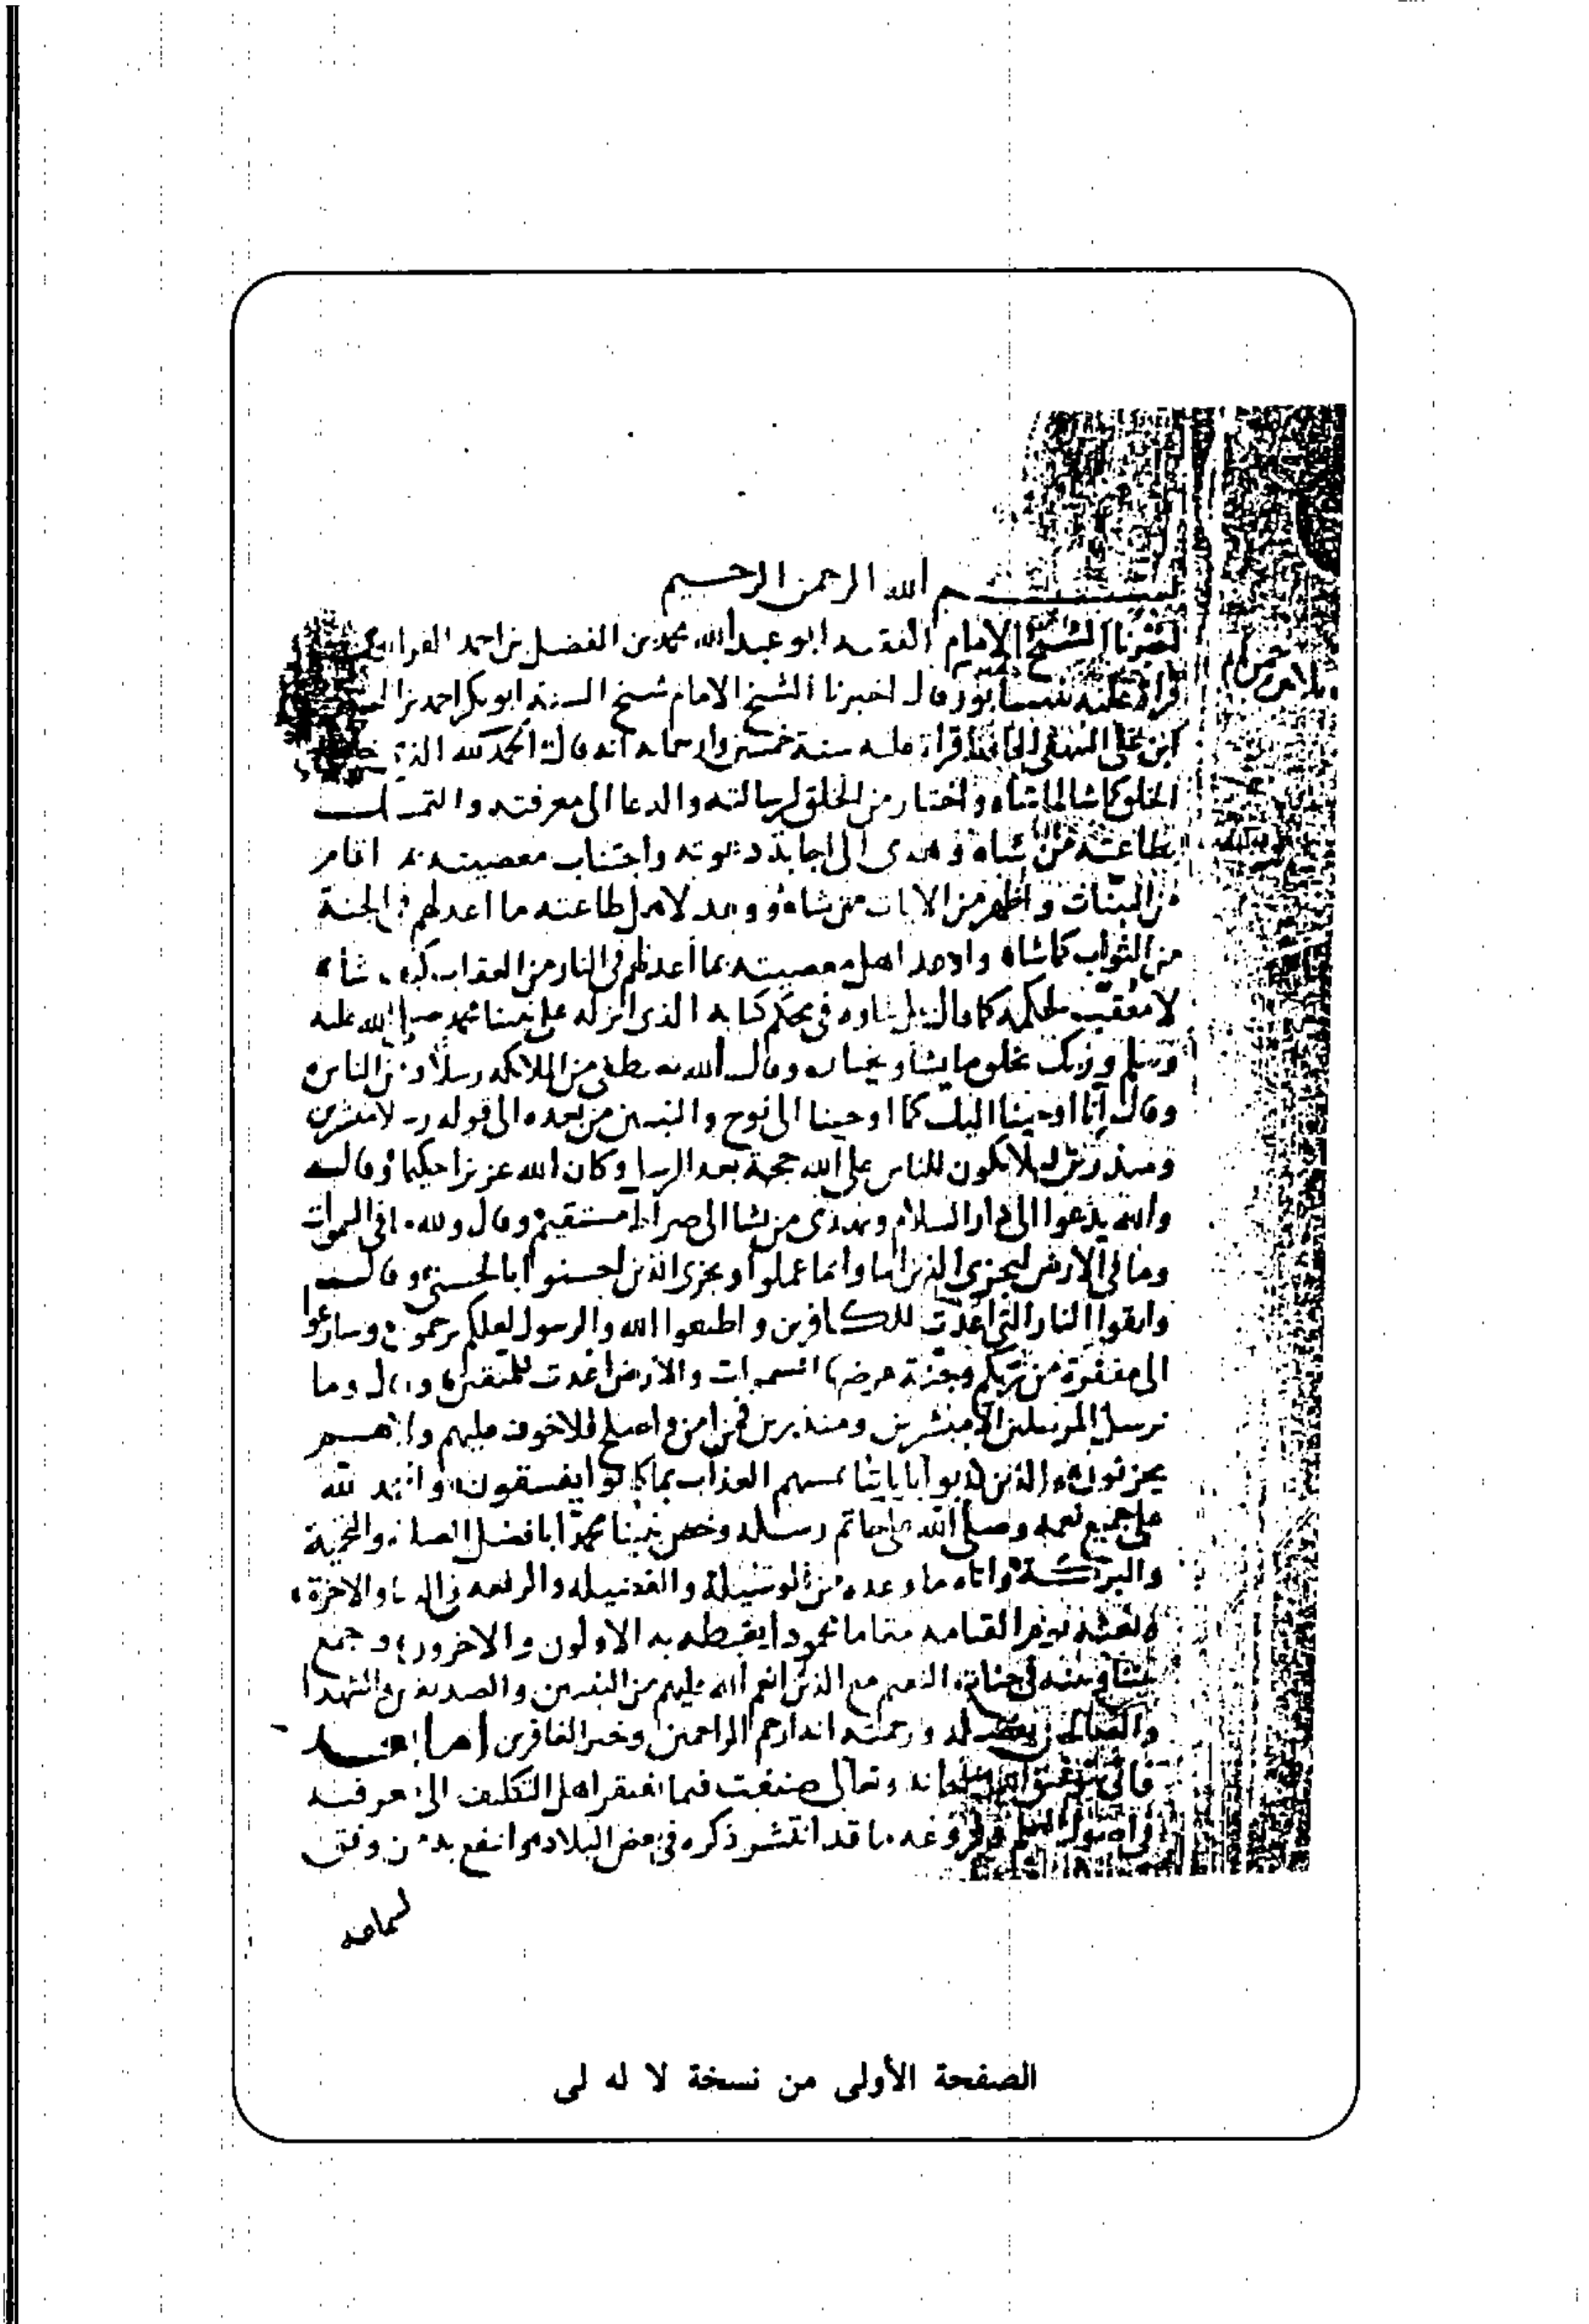 بسم الله الرحمن الرحيم
اخبرنا الشيخ الامام الفقيه ابو عبدالله محمد بن الفضل بن احمد الفراوي
قراة عليه بنيسابور قال اخبرنا الشيخ الامام شيخ السنة ابو بكر احمد بن الحسين
ابن علي البيهقي الحافظ قراة عليه سنة خمسين واربعمايه انه قال الحمد لله الذي خلق
الخلق كما شا لما شاء واختار من الخلق لرسالته والدعا الى معرفته والتمسك
بطاعته من شاء وهدى الى اجابة دعوته واجتناب معصيته اقام
من البينات واظهر من الايات من شاء ووعد لاهل طاعته ما اعد لهم في الجنة
من الثواب كما شاء واوعد اهل معصيته بما اعد لهم في النار من العذاب كيف شاء
لا معقب لحكمه كما قال في محكم كتابه الذي انزله على نبينا محمد صلى الله عليه
وسلم وربك يخلق ما يشا ويختار وقال الله يصطفي من الملائكه رسلا ومن الناس
وقال انا اوحينا اليك كما اوحينا الى نوح والنبيين من بعده الى قوله رسلا مبشرين
ومنذرين لئلا يكون للناس على الله حجة بعد الرسل وكان الله عزيزا حكيما وقال
والله يدعوا الى دار السلام ويهدي من يشا الى صراط مستقيم وقال ولله ما في السموات
وما في الارض ليجزي الذين اساوا بما عملوا ويجزي الذين احسنوا بالحسنى وقال
واتقوا النار التي اعدت للكافرين واطيعوا الله والرسول لعلكم ترحمون وسارعوا
الى مغفرة من ربكم وجنة عرضها السموات والارض اعدت للمتقين وقال وما
نرسل المرسلين الا مبشرين ومنذرين فمن امن واصلح فلا خوف عليهم ولا هم
يحزنون والذين كذبوا باياتنا يمسهم العذاب بما كانوا يفسقون والحمد لله
على جميع نعمه وصلى الله على خاتم رسله وخص نبينا محمدا بافضل الصلاة والتحية
والبركة واتاه ما وعده من الوسيلة والفضيله والرفعه في الدنيا والاخرة
وبعثه يوم القيامه مقاما محمودا يغبطه به الاولون والاخرون وجمع
بيننا وبينه في جنات النعيم مع الذين انعم الله عليهم من النبيين والصديقين والشهدا
والصالحين بفضله ورحمته انه ارحم الراحمين وخير الغافرين اما بعد
فاني بتوفيق الله سبحانه وتعالى صنفت فيما يفتقر اهل التكليف الى معرفته
في اصول العلم وفروعه ما قد انتشر ذكره في بعض البلاد وانتفع به من وفق
لسماعه
الصفحة الأولى من نسخة لا له لى